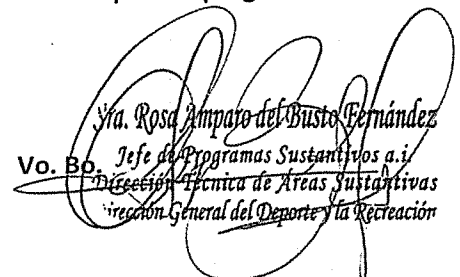 Sra. Rosa Amparo del Busto Fernández
Vo. Bo. Jefe de Programas Sustantivos a.i.
Dirección Técnica de Areas Sustantivas
Dirección General del Deporte y la Recreación